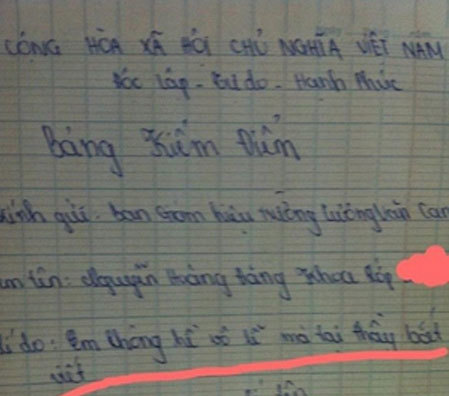 CÔNG HÒA XÃ HỘI CHỦ NGHĨA VIỆT NAM
Đôc lập - Tự do - Hạnh Phúc
Bảng Kiểm Điểm
kính gửi: ban Gám hiệu trường Lương Văn Can
Em tên: Nguyễn Hoàng Đăng Khoa Lớp
Lí do: Em không hề vô lễ mà tại thầy bắt
viết